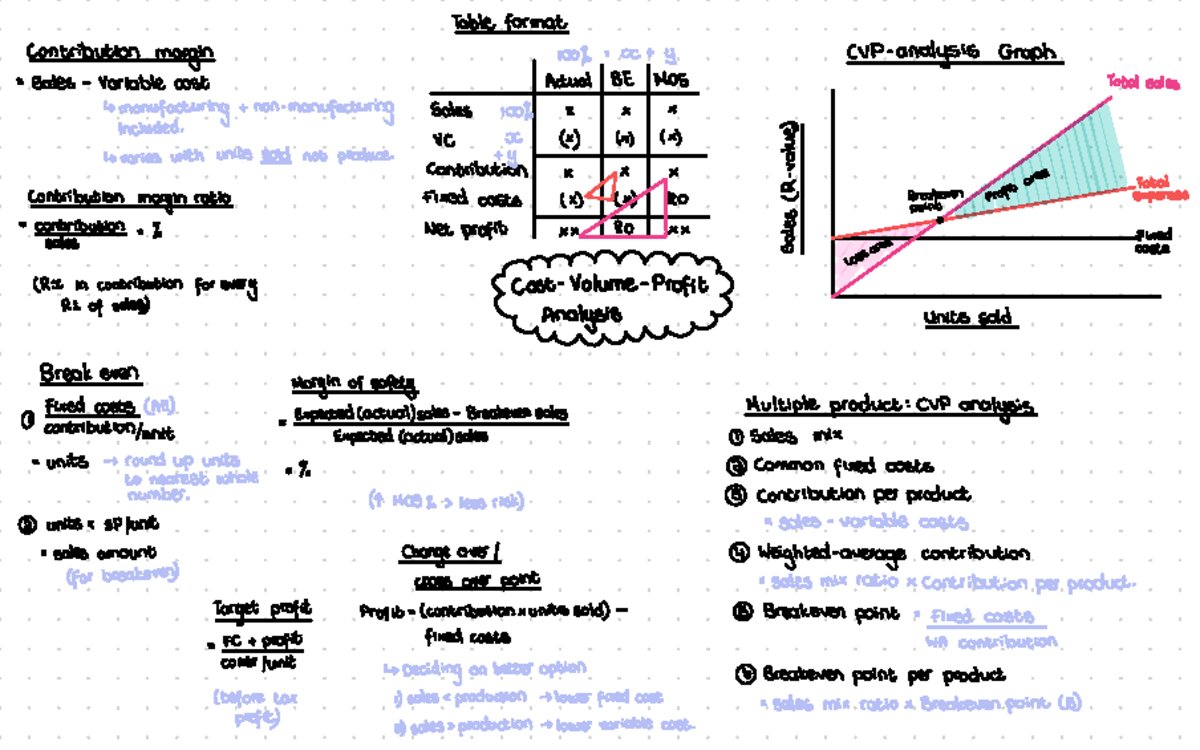 Table format
100% = x + y
Actual BE MOS
Sales 100% x x x
VC x (x) (x) (x)
+ y
Contribution x x x
Fixed costs (x) (x) R0
Net profit xx R0 xx
Cost-Volume-Profit
Analysis
Contribution margin
= Sales - Variable cost
↳ manufacturing + non-manufacturing
included.
↳ varies with units sold not produce.
Contribution margin ratio
= contribution
sales
= %
(R x in contribution for every
R1 of sales)
CVP-analysis Graph
Total sales
Total expenses
Fixed
costs
Breakeven
point
Profit area
Loss area
Sales (R-value)
Units sold
Break even
① Fixed costs (All)
contribution/unit
= units → round up units
to nearest whole
number.
② units x SP/unit
= sales amount
(for breakeven)
Margin of safety
= Expected (actual) sales - Breakeven sales
Expected (actual) sales
= %
(↑ MOS % → less risk)
Target profit
= FC + profit
contr/unit
(before tax
profit)
Change over/
cross over point
Profit = (contribution x units sold) -
fixed costs
↳ Deciding on better option
i) sales < production → lower fixed cost
ii) sales > production → lower variable cost.
Multiple product: CVP analysis
① Sales mix
② Common fixed costs
③ Contribution per product
= sales - variable costs
④ Weighted-average contribution
= sales mix ratio x contribution per product.
⑤ Breakeven point = Fixed costs
WA contribution
⑥ Breakeven point per product
= sales mix ratio x Breakeven point (5)